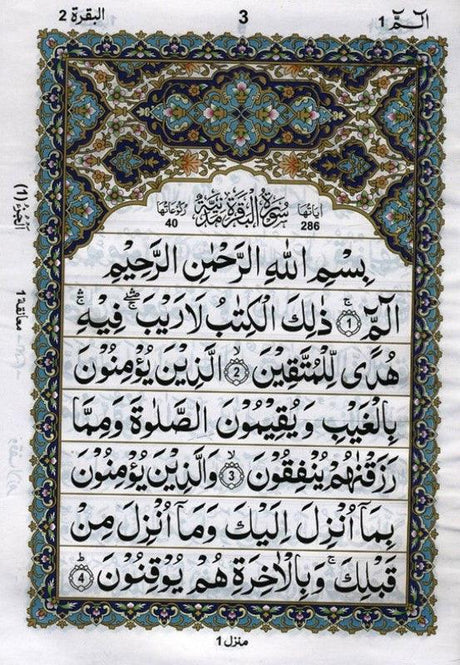 الٓمّٓ 1
3
البقرة 2
اٰیَاتُهَا 286
سُوْرَةُ الْبَقَرَةِ مَدَنِیَّةٌ
رُكُوْعَاتُهَا 40
بِسْمِ اللّٰهِ الرَّحْمٰنِ الرَّحِیْمِ
الٓمّٓ ۚ﴿1﴾ ذٰلِكَ الْكِتٰبُ لَا رَیْبَ ۛۖۚ فِیْهِ ۛۚ
هُدًی لِّلْمُتَّقِیْنَ ۙ﴿2﴾ الَّذِیْنَ یُؤْمِنُوْنَ
بِالْغَیْبِ وَیُقِیْمُوْنَ الصَّلٰوةَ وَمِمَّا
رَزَقْنٰهُمْ یُنْفِقُوْنَ ۙ﴿3﴾ وَالَّذِیْنَ یُؤْمِنُوْنَ
بِمَاۤ اُنْزِلَ اِلَیْكَ وَمَاۤ اُنْزِلَ مِنْ
قَبْلِكَ ۚ وَبِالْاٰخِرَةِ هُمْ یُوْقِنُوْنَ ؕ﴿4﴾
اَلْجُزْءُ (1)
معانقة 1
منزل 1